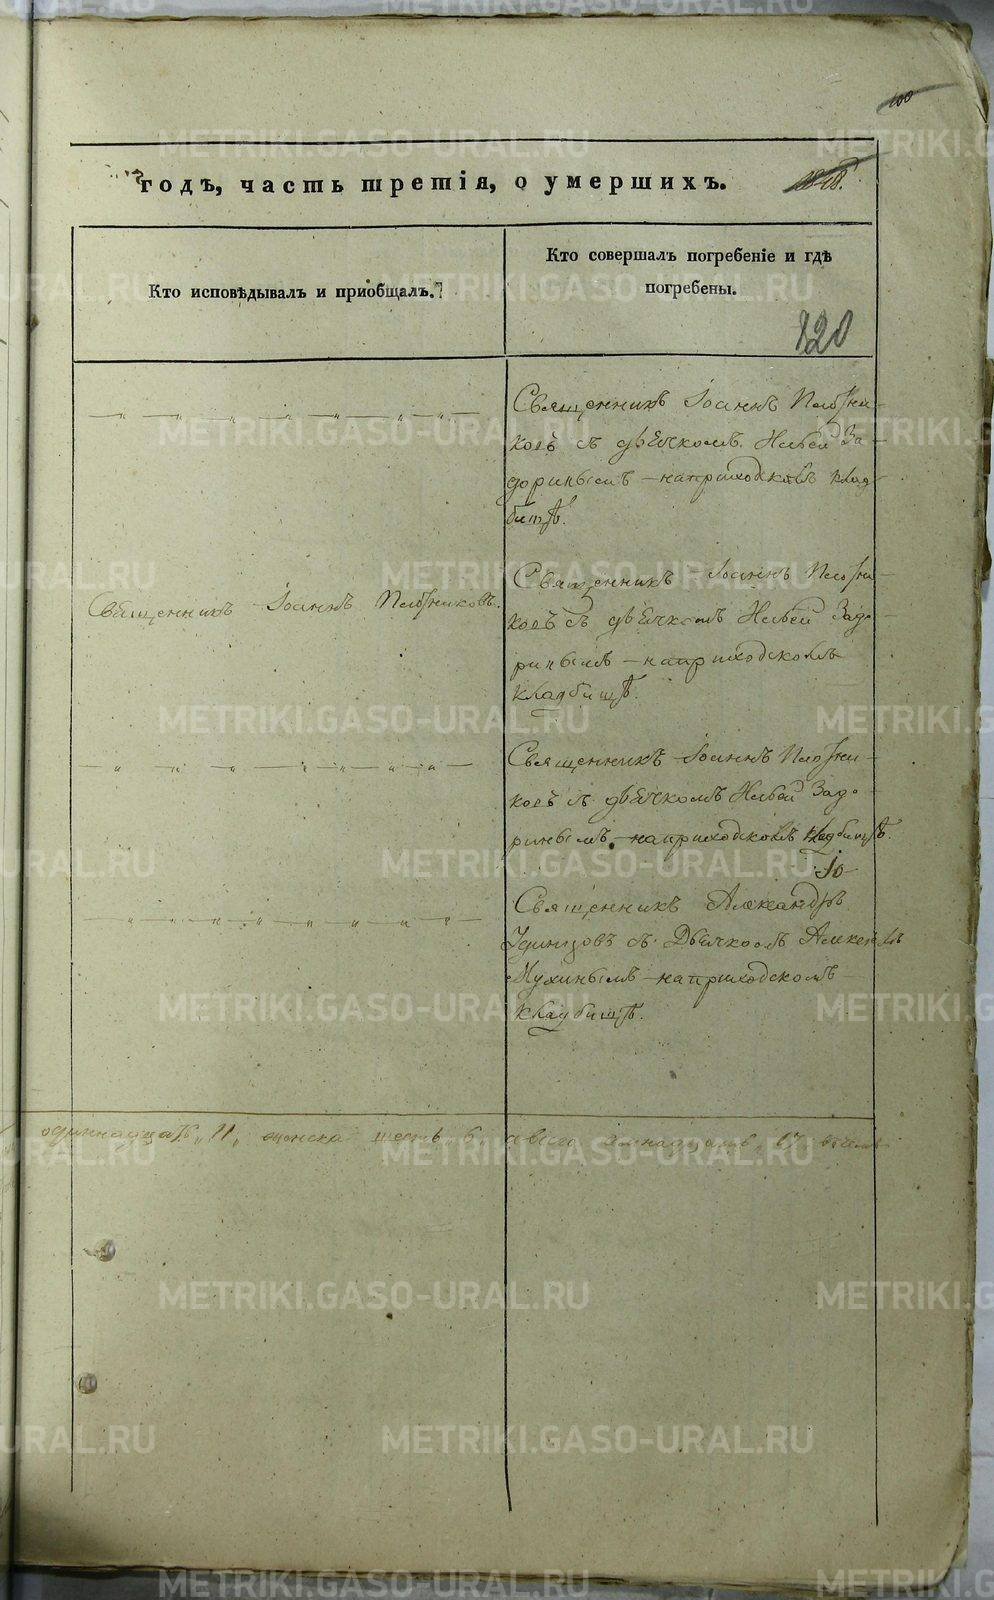 100
годъ, часть третія, о умершихъ.
Кто исповѣдывалъ и приобщалъ.
Кто совершалъ погребеніе и гдѣ
погребены.
120
Священникъ Іоаннъ Плотни-
ковъ съ дьячкомъ За-
доринымъ на приходскомъ клад-
бищѣ.
Священникъ Іоаннъ Плотниковъ.
Священникъ Іоаннъ Плотни-
ковъ съ дьячкомъ Задо-
ринымъ на приходскомъ
кладбищѣ.
Священникъ Іоаннъ Плотни-
ковъ съ дьячкомъ Задо-
ринымъ на приходскомъ кладбищѣ.
Священникъ Александръ
Удинцовъ съ Дьячкомъ Алексѣемъ
Мухинымъ на приходскомъ
кладбищѣ.
одиннадцать, 11, женска шесть 6, а всего 17
METRIKI.GASO-URAL.RU